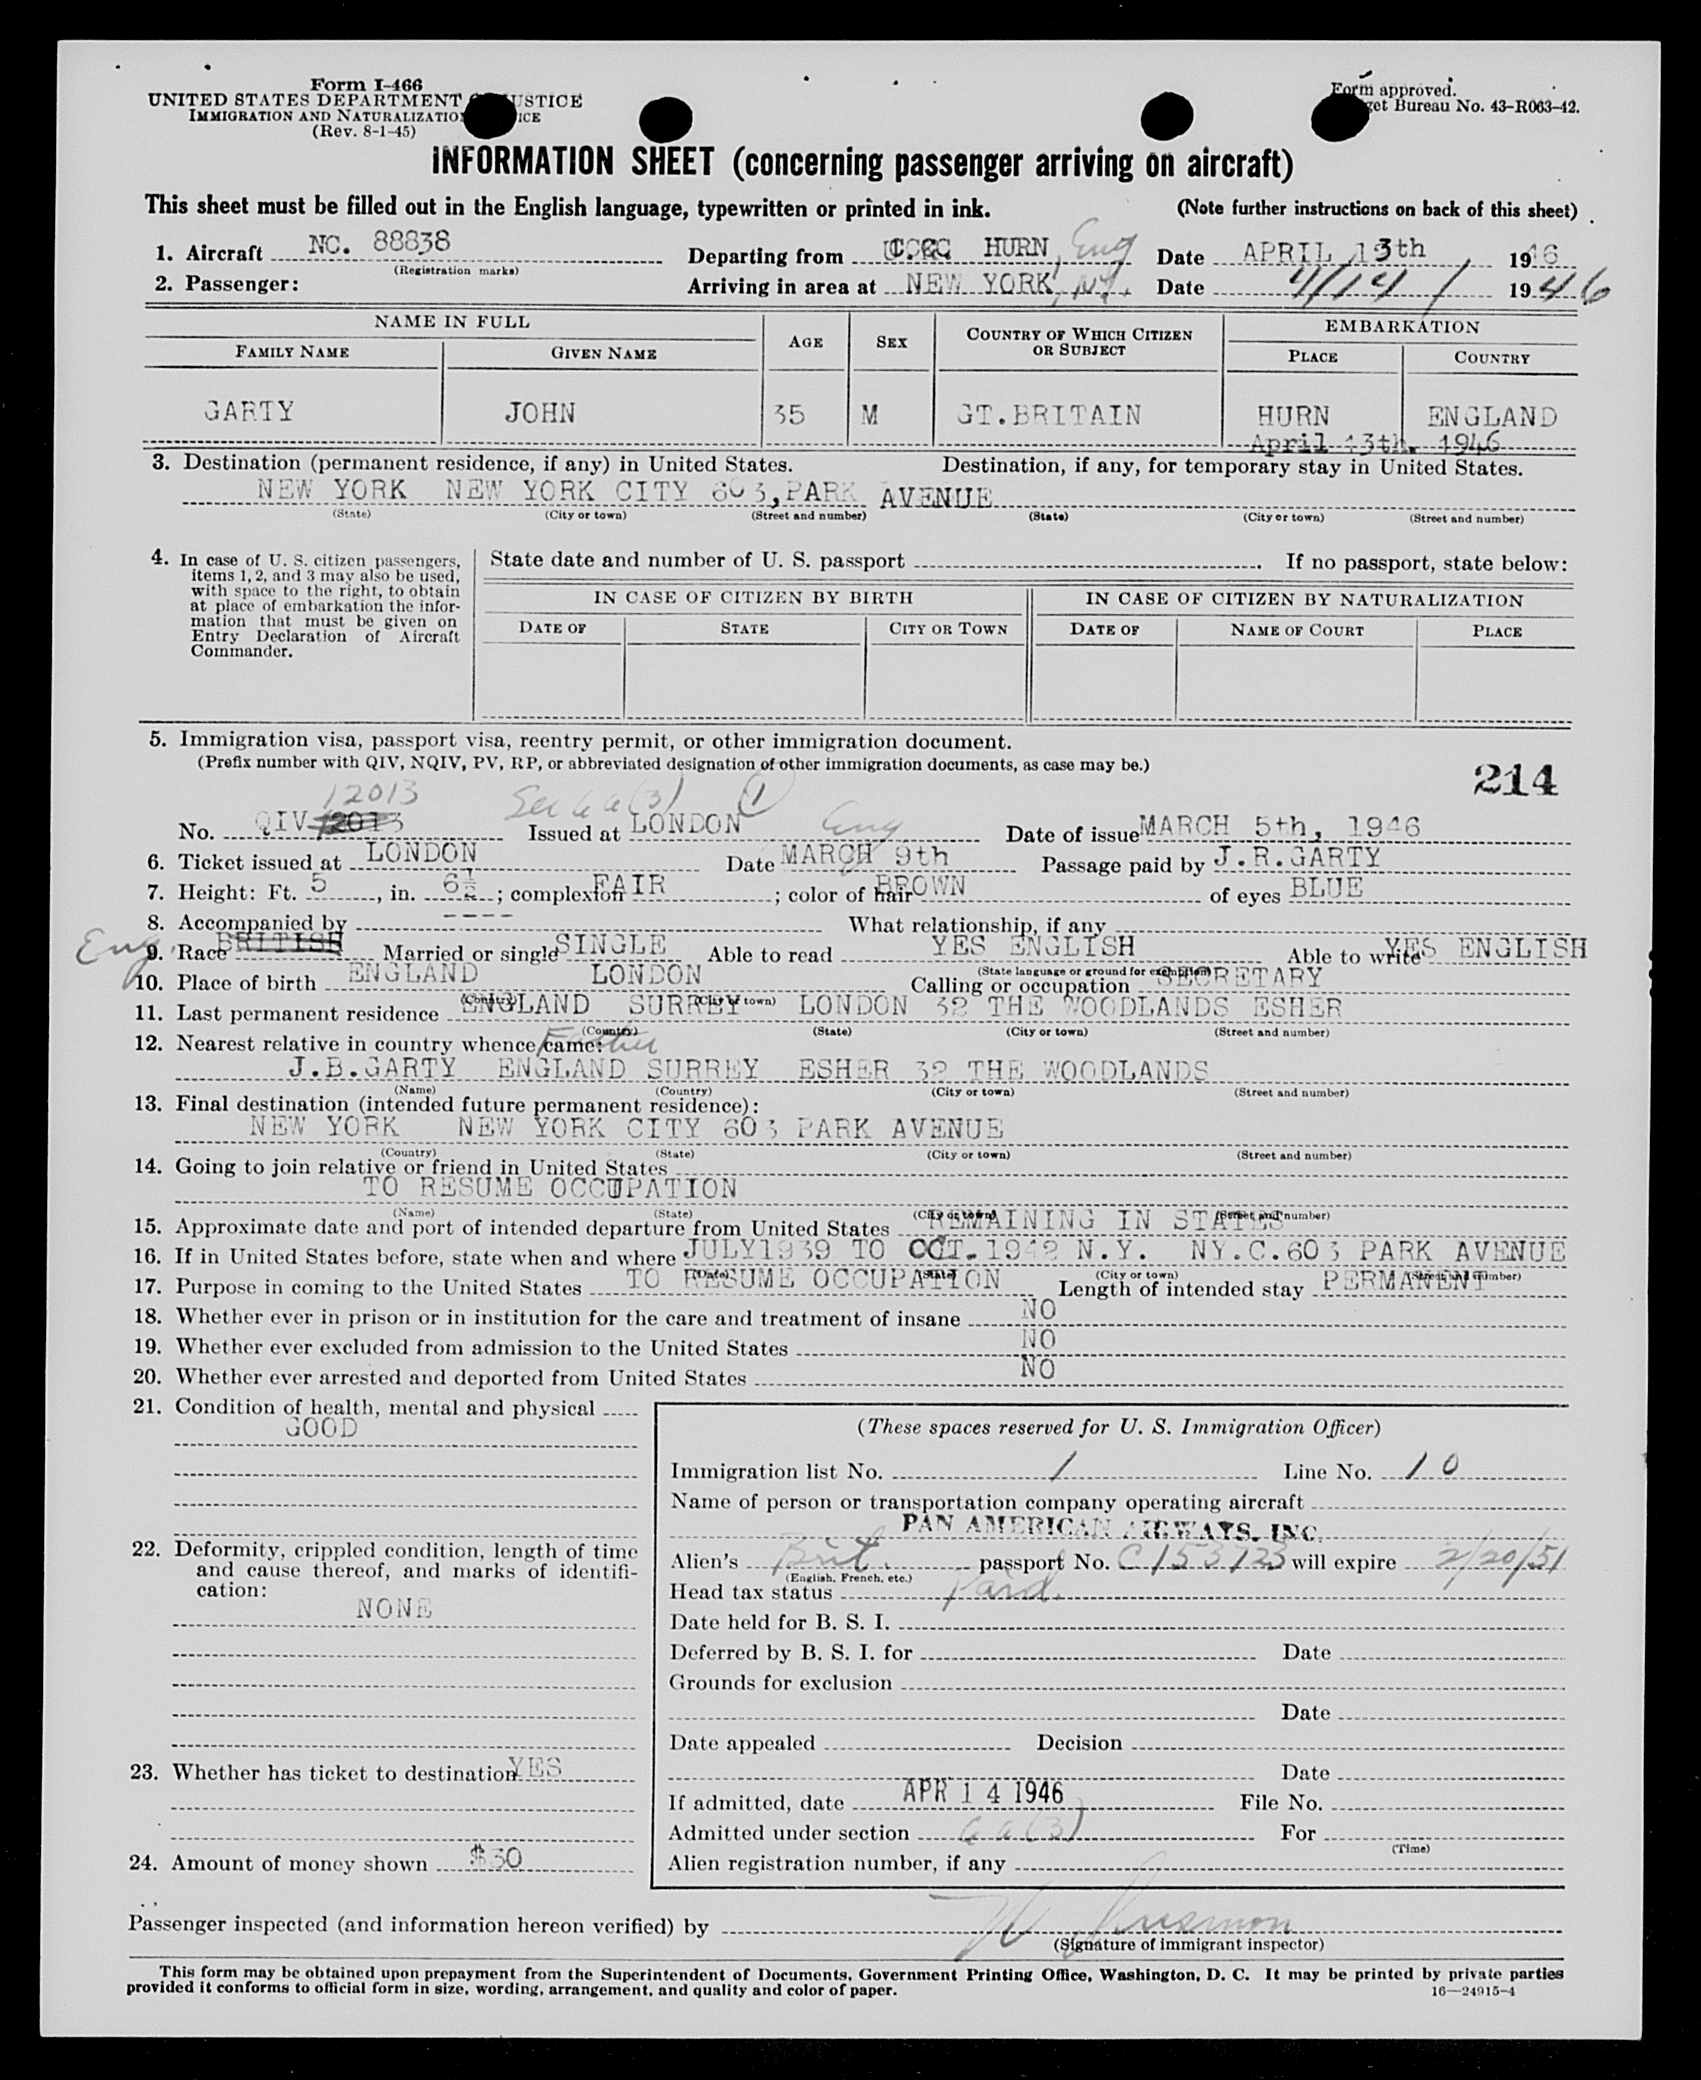 Form I-466
UNITED STATES DEPARTMENT JUSTICE
IMMIGRATION AND NATURALIZATION
(Rev. 8-1-45)
Form approved.
Bureau No. 43-R063-42.
INFORMATION SHEET (concerning passenger arriving on aircraft)
This sheet must be filled out in the English language, typewritten or printed in ink. (Note further instructions on back of this sheet)
1. Aircraft NC. 88838 Departing from HURN, Eng Date APRIL 13th, 1946
(Registration marks)
2. Passenger: Arriving in area at NEW YORK, N.Y. Date 4/14/ 1946
NAME IN FULL AGE SEX COUNTRY OF WHICH CITIZEN OR SUBJECT EMBARKATION
FAMILY NAME GIVEN NAME PLACE COUNTRY
GARTY JOHN 35 M GT.BRITAIN HURN ENGLAND
April 13th. 1946
3. Destination (permanent residence, if any) in United States. Destination, if any, for temporary stay in United States.
NEW YORK NEW YORK CITY 603, PARK AVENUE
(State) (City or town) (Street and number) (State) (City or town) (Street and number)
4. In case of U. S. citizen passengers, items 1, 2, and 3 may also be used, with space to the right, to obtain at place of embarkation the information that must be given on Entry Declaration of Aircraft Commander.
State date and number of U. S. passport If no passport, state below:
IN CASE OF CITIZEN BY BIRTH IN CASE OF CITIZEN BY NATURALIZATION
DATE OF STATE CITY OR TOWN DATE OF NAME OF COURT PLACE
5. Immigration visa, passport visa, reentry permit, or other immigration document.
(Prefix number with QIV, NQIV, PV, RP, or abbreviated designation of other immigration documents, as case may be.)
214
12013 Sec 6a(3) 1
No. QIV 12013 Issued at LONDON Eng Date of issue MARCH 5th, 1946
6. Ticket issued at LONDON Date MARCH 9th Passage paid by J.R.GARTY
7. Height: Ft. 5, in. 6½; complexion FAIR; color of hair BROWN of eyes BLUE
8. Accompanied by ---- What relationship, if any
Eng. 9. Race BRITISH Married or single SINGLE Able to read YES ENGLISH Able to write YES ENGLISH
(State language or ground for exemption)
10. Place of birth ENGLAND LONDON Calling or occupation SECRETARY
(Country) (City or town)
11. Last permanent residence ENGLAND SURREY LONDON 32 THE WOODLANDS ESHER
(Country) (State) (City or town) (Street and number)
12. Nearest relative in country whence came: Father
J.B.GARTY ENGLAND SURREY ESHER 32 THE WOODLANDS
(Name) (Country) (City or town) (Street and number)
13. Final destination (intended future permanent residence):
NEW YORK NEW YORK CITY 603 PARK AVENUE
(Country) (State) (City or town) (Street and number)
14. Going to join relative or friend in United States
TO RESUME OCCUPATION
(Name) (State) (City or town) (Street and number)
15. Approximate date and port of intended departure from United States REMAINING IN STATES
16. If in United States before, state when and where JULY1939 TO OCT.1942 N.Y. NY.C.603 PARK AVENUE
(Date) (State) (City or town) (Street and number)
17. Purpose in coming to the United States TO RESUME OCCUPATION Length of intended stay PERMANENT
18. Whether ever in prison or in institution for the care and treatment of insane NO
19. Whether ever excluded from admission to the United States NO
20. Whether ever arrested and deported from United States NO
21. Condition of health, mental and physical
GOOD
22. Deformity, crippled condition, length of time and cause thereof, and marks of identification:
NONE
23. Whether has ticket to destination YES
24. Amount of money shown $30
(These spaces reserved for U. S. Immigration Officer)
Immigration list No. 1 Line No. 10
Name of person or transportation company operating aircraft
PAN AMERICAN AIRWAYS, INC.
Alien's Brit. passport No. C153723 will expire 2/20/51
(English, French, etc.)
Head tax status Paid.
Date held for B. S. I.
Deferred by B. S. I. for Date
Grounds for exclusion
Date
Date appealed Decision
Date
If admitted, date APR 14 1946 File No.
Admitted under section 6a(3) For
(Time)
Alien registration number, if any
Passenger inspected (and information hereon verified) by
(Signature of immigrant inspector)
This form may be obtained upon prepayment from the Superintendent of Documents, Government Printing Office, Washington, D. C. It may be printed by private parties
provided it conforms to official form in size, wording, arrangement, and quality and color of paper.
16—24915-4